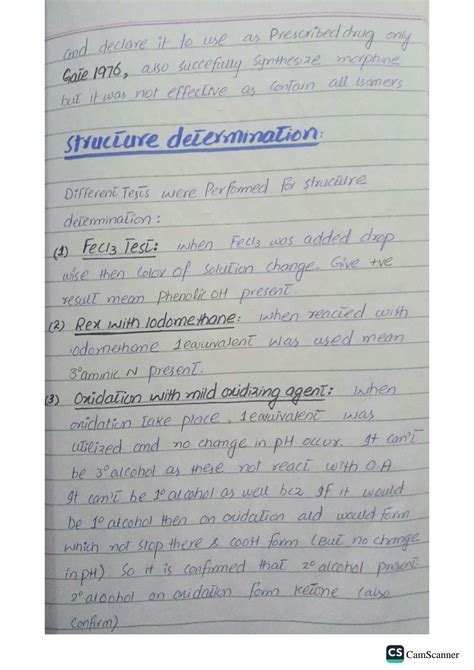 and declare it to use as Prescribed drug only
Gate 1976, also succefully synthesize morphine
but it was not effective as contain all isomers
Structure determination:
Different Tests were Performed for structure
determination:
(1) FeCl3 Test: when FeCl3 was added drop
wise then Color of solution change. Give +ve
result mean phenolic OH present.
(2) Rex with Iodomethane: when reacted with
iodomethane 1 equivalent was used mean
3° aminic N present.
(3) Oxidation with mild oxidizing agent: when
oxidation take place, 1 equivalent was
utilized and no change in pH occur. It can't
be 3° alcohol as these not react with O.A.
It can't be 1° alcohol as well bcz if it would
be 1° alcohol then on oxidation ald would form
which not stop there & COOH form (But no change
in pH) So it is confirmed that 2° alcohol present
2° alcohol on oxidation form Ketone (also
confirm)
CS CamScanner